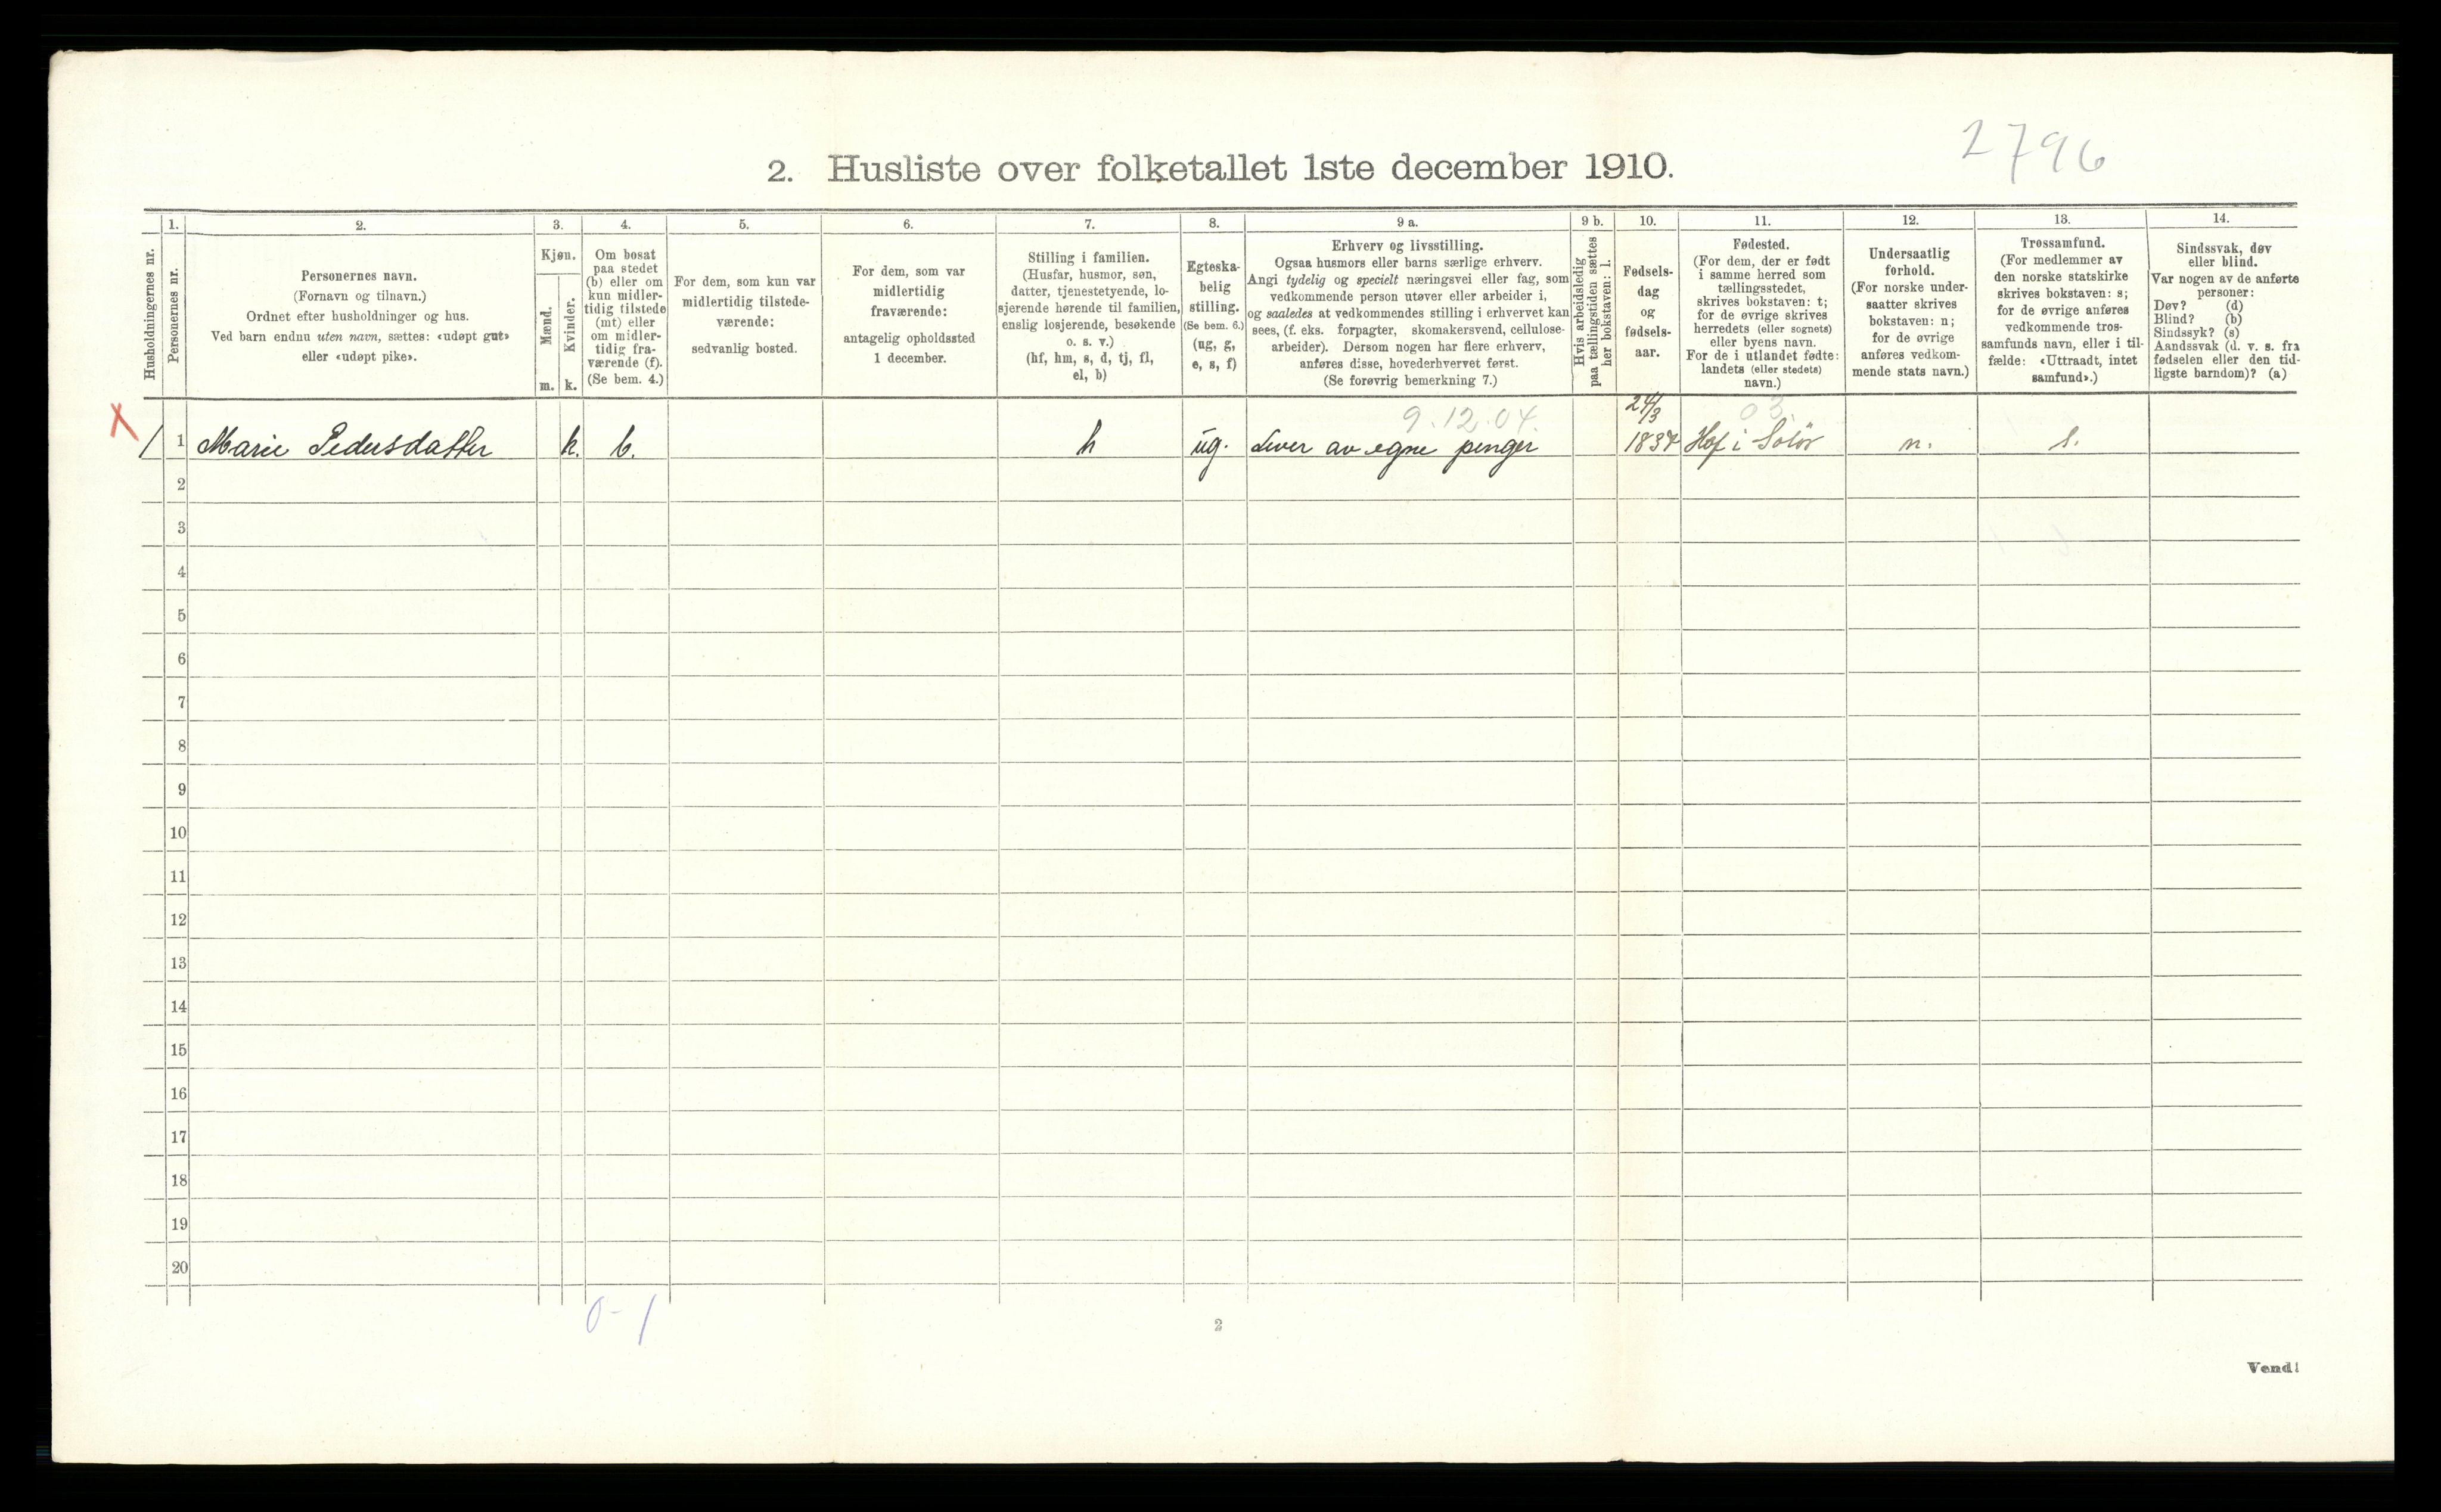 2796
2. Husliste over folketallet 1ste december 1910.
Husholdningernes nr.
1.
Personernes nr.
2.
Personernes navn.
(Fornavn og tilnavn.)
Ordnet efter husholdninger og hus.
Ved barn endnu uten navn, sættes: «udøpt gut»
eller «udøpt pike».
3.
Kjøn.
Mænd.
Kvinder.
m.
k.
4.
Om bosat
paa stedet
(b) eller om
kun midler-
tidig tilstede
(mt) eller
om midler-
tidig fra-
værende (f).
(Se bem. 4.)
5.
For dem, som kun var
midlertidig tilstede-
værende:
sedvanlig bosted.
6.
For dem, som var
midlertidig
fraværende:
antagelig opholdssted
1 december.
7.
Stilling i familien.
(Husfar, husmor, søn,
datter, tjenestetyende, lo-
sjerende hørende til familien,
enslig losjerende, besøkende
o. s. v.)
(hf, hm, s, d, tj, fl,
el, b)
8.
Egteska-
belig
stilling.
(Se bem. 6.)
(ug, g,
e, s, f)
9 a.
Erhverv og livsstilling.
Ogsaa husmors eller barns særlige erhverv.
Angi tydelig og specielt næringsvei eller fag, som
vedkommende person utøver eller arbeider i,
og saaledes at vedkommendes stilling i erhvervet kan
sees, (f. eks. forpagter, skomakersvend, cellulose-
arbeider). Dersom nogen har flere erhverv,
anføres disse, hovederhvervet først.
(Se forøvrig bemerkning 7.)
9 b.
Hvis arbeidsledig
paa tællingstiden sættes
her bokstaven: l.
10.
Fødsels-
dag
og
fødsels-
aar.
11.
Fødested.
(For dem, der er født
i samme herred som
tællingsstedet,
skrives bokstaven: t;
for de øvrige skrives
herredets (eller sognets)
eller byens navn.
For de i utlandet fødte:
landets (eller stedets)
navn.)
12.
Undersaatlig
forhold.
(For norske under-
saatter skrives
bokstaven: n;
for de øvrige
anføres vedkom-
mende stats navn.)
13.
Trossamfund.
(For medlemmer av
den norske statskirke
skrives bokstaven: s;
for de øvrige anføres
vedkommende tros-
samfunds navn, eller i til-
fælde: «Uttraadt, intet
samfund».)
14.
Sindssvak, døv
eller blind.
Var nogen av de anførte
personer:
Døv? (d)
Blind? (b)
Sindssyk? (s)
Aandssvak (d. v. s. fra
fødselen eller den tid-
ligste barndom)? (a)
X
9.12.04. 24/3 03.
1 1 Marie Pedersdatter k. b. h ug. Lever av egne penger 1837 Hof i Solør n. s.
2
3
4
5
6
7
8
9
10
11
12
13
14
15
16
17
18
19
20
0-1
2
Vend!